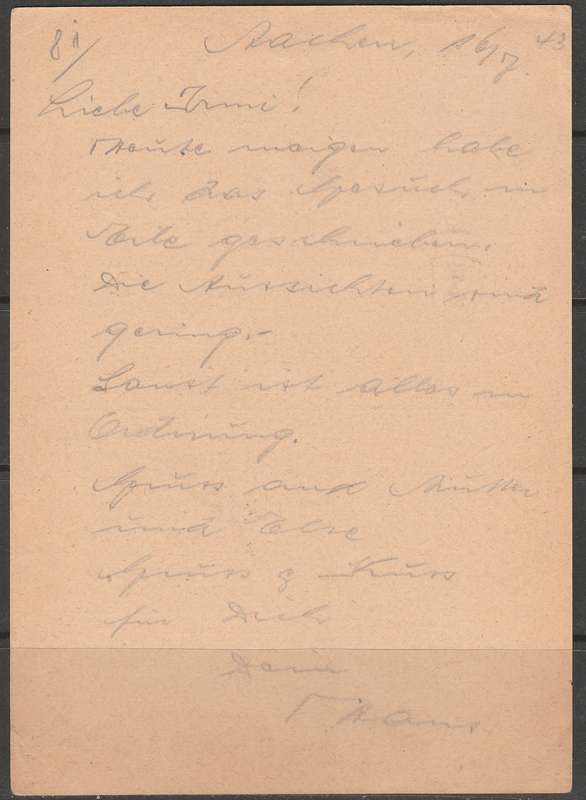 81/
Aachen, 16/7. 43
Liebe Irmi!
Heute morgen habe
ich das Gesuch in
Eile geschrieben.
Die Aussichten sind
gering.-
Sonst ist alles in
Ordnung.
Gruss auch Mutter
und Else
Gruss & Kuss
für Dich
Dein
Hans